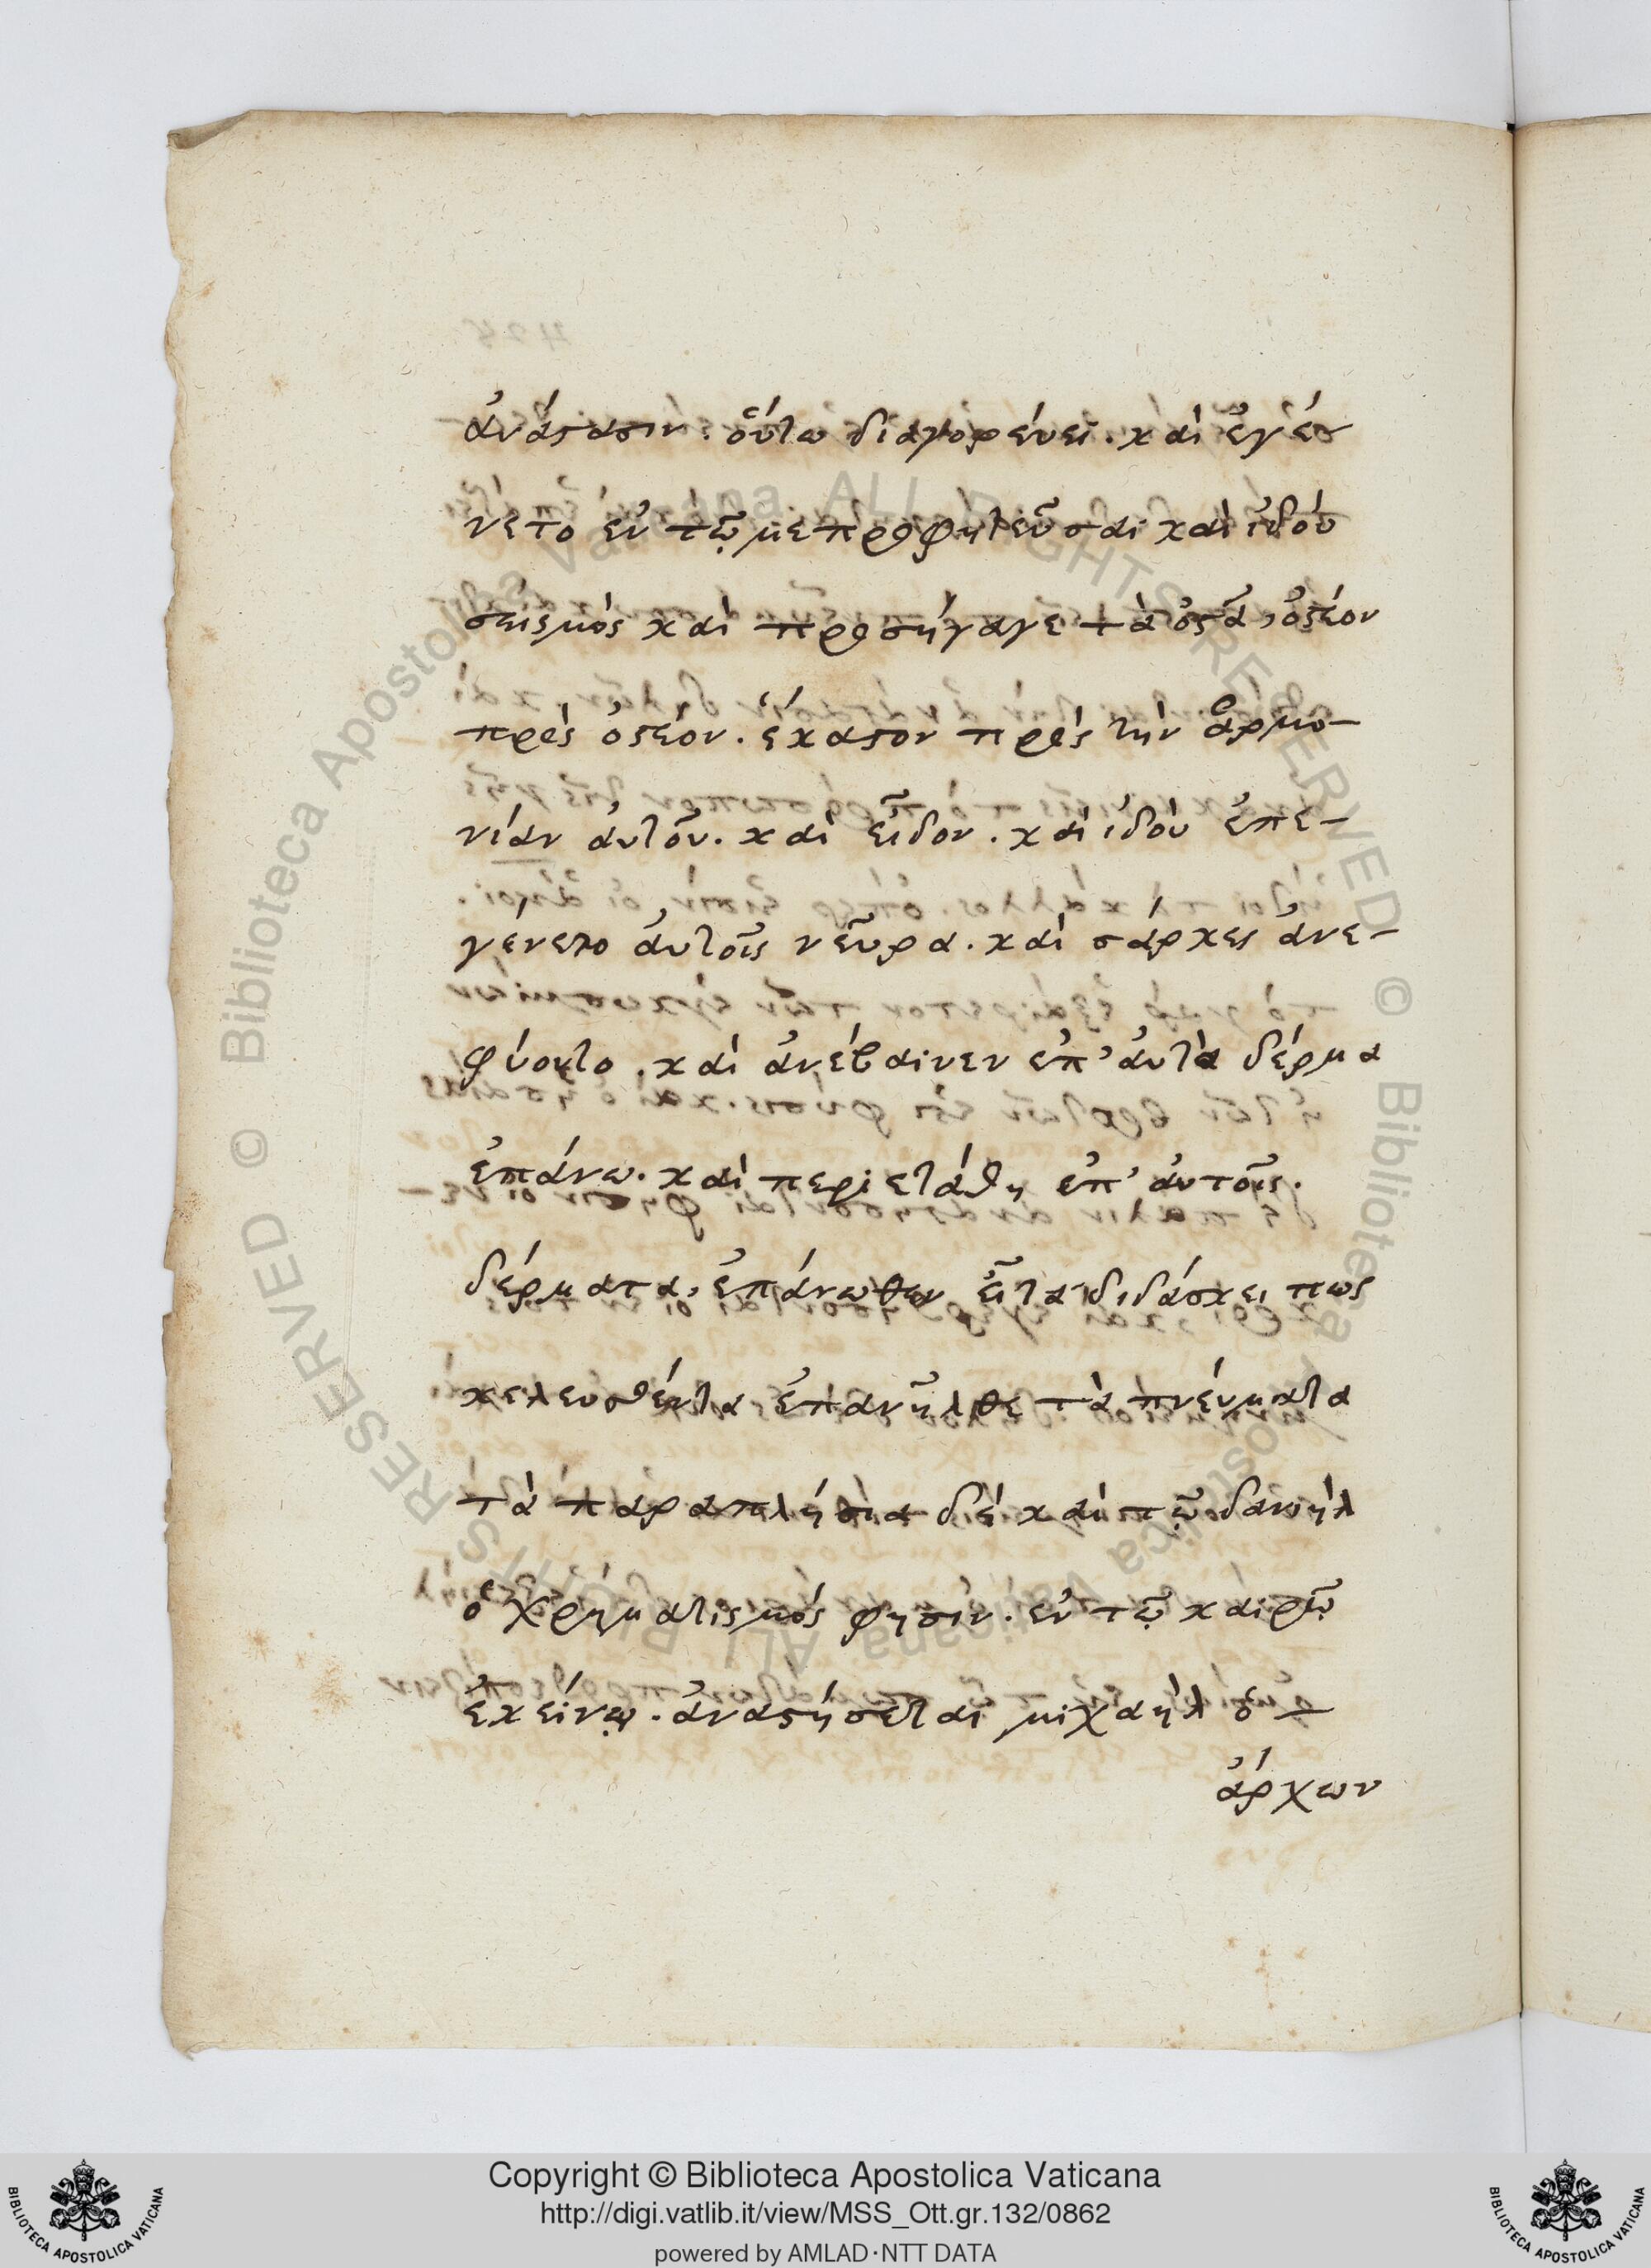 ἀνάστασιν. οὕτω διαγορεύει. καὶ ἐγέ-
νετο ἐν τῷ με προφητεῦσαι καὶ ἰδοὺ
σεισμὸς καὶ προσήγαγε τὰ ὀστᾶ, ὀστέον
πρὸς ὀστέον. ἕκαστον πρὸς τὴν ἁρμο-
νίαν αὐτοῦ. καὶ εἶδον. καὶ ἰδοὺ ἐπε-
γένετο αὐτοῖς νεῦρα. καὶ σάρκες ἀνε-
φύοντο. καὶ ἀνέβαινεν ἐπ' αὐτὰ δέρμα
ἐπάνω. καὶ περιετάθη ἐπ' αὐτοῖς.
δέρματα, ἐπάνωθεν εἶτα διδάσκει πως
κελευσθέντα ἐπανῆλθε τὰ πνεύματα
τὰ παραπλήσια δὲ καὶ τῷ δανιὴλ
ὁ χρηματισμός φησιν. ἐν τῷ καιρῷ
ἐκείνῳ. ἀναστήσεται μιχαὴλ ὁ —
ἄρχων
Copyright © Biblioteca Apostolica Vaticana
http://digi.vatlib.it/view/MSS_Ott.gr.132/0862
powered by AMLAD·NTT DATA
BIBLIOTECA APOSTOLICA VATICANA
BIBLIOTECA APOSTOLICA VATICANA
© Biblioteca Apostolica Vaticana ALL RIGHTS RESERVED
© Biblioteca Apostolica Vaticana ALL RIGHTS RESERVED